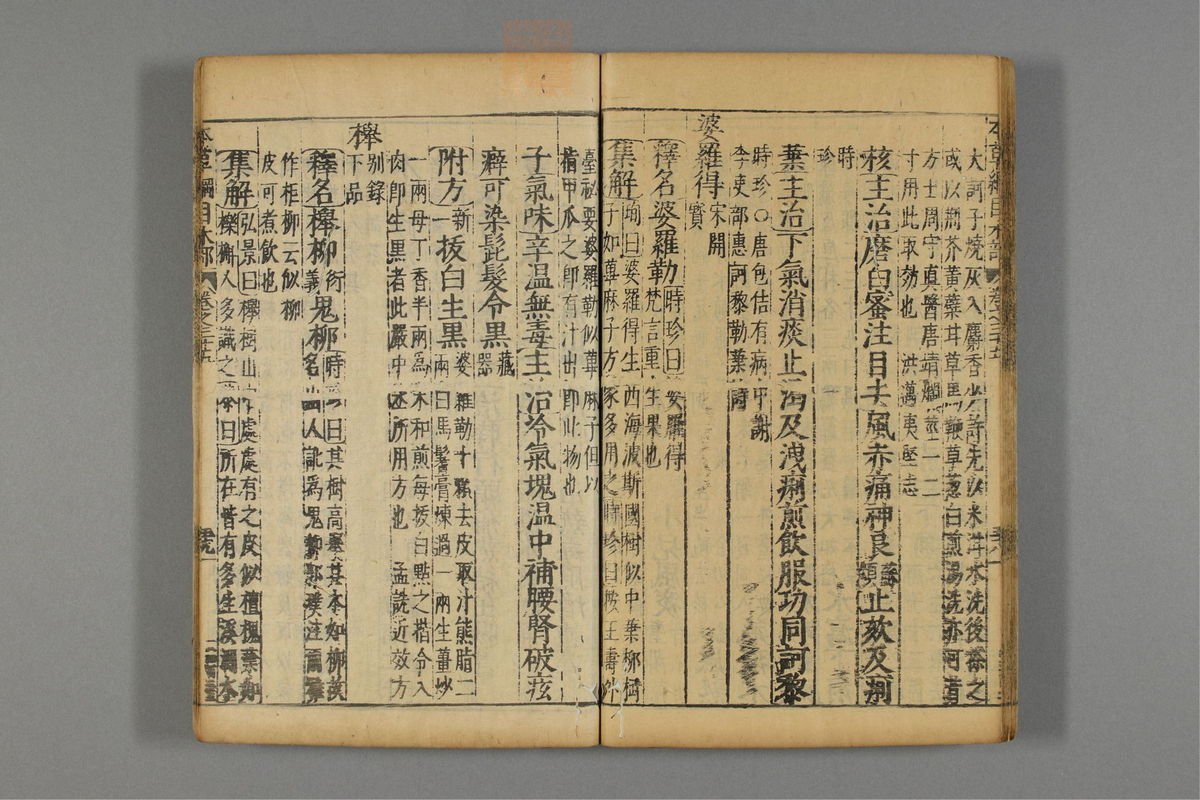 本草綱目木部 卷之三十五
大訶子燒灰入麝香少許先以米泔水洗後搽之
或以䕡芥黃蘗甘草馬鞭草葱白煎湯洗亦可昔
方士周守真醫唐靖爛莖一二
寸用此取効也 洪邁夷堅志
核主治磨白蜜注目去風赤痛神良蘇頌止欬及痢
時珍
葉主治下氣消痰止渴及洩痢煎飲服功同訶黎
時珍〇唐包佶有病中謝
李吏部惠訶黎勒葉詩
婆羅得宋開寶
釋名婆羅勒時珍曰婆羅得
梵言重生果也
集解珣曰婆羅得生西海波斯國樹似中華柳樹
子如蓖麻子方家多用之時珍曰按王燾外
臺祕要婆羅勒似蓖麻子但以
指甲爪之即有汁出即此物也
子氣味辛溫無毒主治冷氣塊溫中補腰腎破痃
癖可染髭髮令黑藏器
附方新一拔白生黑婆羅勒十顆去皮取汁熊脂二
兩白馬鬐膏煉過一兩生薑炒
一兩母丁香半兩為末和煎每拔白點之揩令入
肉即生黑者此嚴中丞所用方也 孟詵近效方
櫸別錄
下品
釋名櫸柳衍義鬼柳時珍曰其樹高舉其木如柳故
名山人訛為鬼柳郭璞注爾雅
作柜柳云似柳
皮可煮飲也
集解弘景曰櫸樹山中處處有之皮似檀槐葉如
櫟槲人多識之 今日所在皆有多生溪澗水
本草綱目木部 卷之三十五